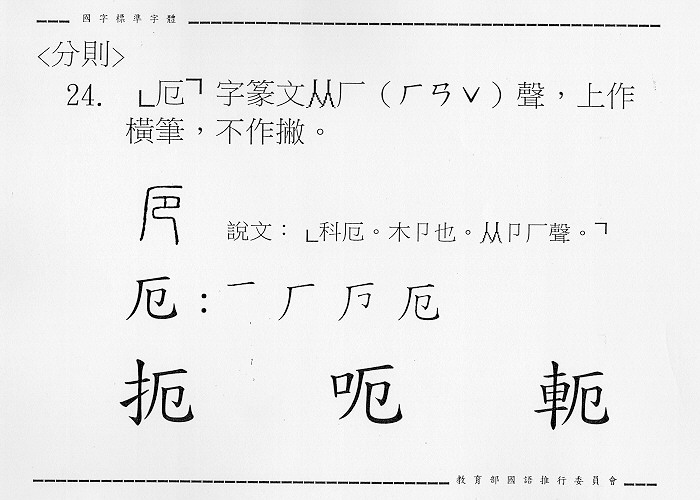 國字標準字體
<分則>
24. 「厄」字篆文从厂(ㄏㄢˇ)聲,上作
橫筆,不作撇。
說文:「科厄。木卩也。从卩厂聲。」
厄: 一 厂 厄
扼 呃 軛
教育部國語推行委員會